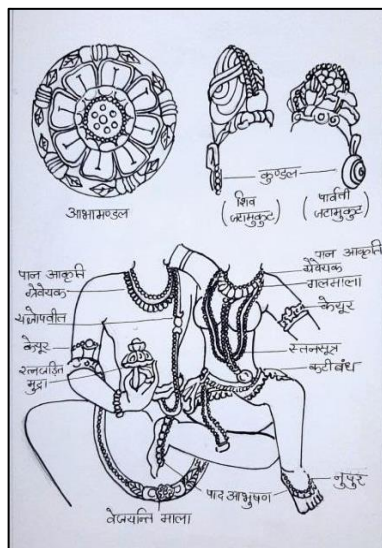 आभामण्डल
कुण्डल
शिव
(जटामुकुट)
पार्वती
(जटामुकुट)
पान आकृति
ग्रैवेयक
यज्ञोपवीत
केयूर
रत्नजड़ित
मुद्रा
पान आकृति
ग्रैवेयक
गलमाला
केयूर
स्तनसूत्र
कटीबंध
नुपुर
पाद आभुषण
वेजयन्ति माला